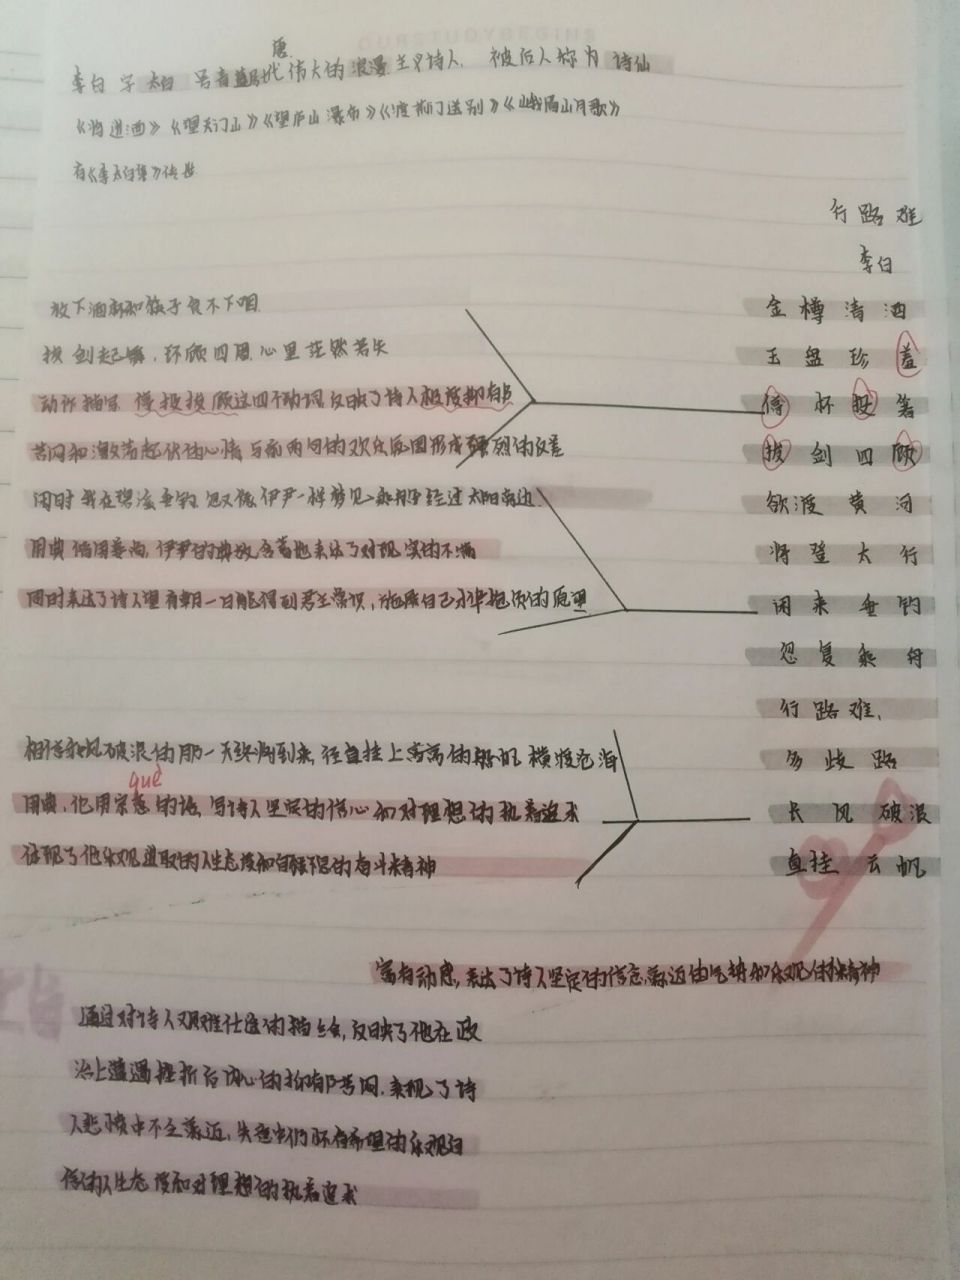 唐
李白 字 太白 号青莲居 代伟大的浪漫主义诗人 被后人称为 诗仙
《将进酒》《望天门山》《望庐山瀑布》《渡荆门送别》《峨眉山月歌》
有《李太白集》传世
行路难
李白
金樽清酒
玉盘珍羞
停杯投箸
拔剑四顾
欲渡黄河
将登太行
闲来垂钓
忽复乘舟
行路难,
多歧路
长风破浪
直挂云帆
放下酒杯和筷子食不下咽
拔剑起 , 环顾四周 心里茫然若失
动作描写 停投拔顾这四个动词反映了诗人极度抑郁
苦闷和激荡起伏的心情与前两句的欢乐氛围形成强烈的反差
闲时我在碧溪垂钓 忽又像伊尹一样梦见乘舟经过太阳旁边
用典 借用姜尚, 伊尹的典故含蓄地表达了对现实的不满
同时表达了诗人望有朝一日能得到君主赏识, 施展自己 抱负的愿望
相信乘风破浪的那一天终将到来, 径直挂上高高的船帆 横渡沧海
què
用典, 化用宗悫的话, 写诗人坚定的信心和对理想的执着追求
体现了他乐观进取的人生态度和自强不息的奋斗精神
富有动感, 表达了诗人坚定的信念 豪迈的气 和乐观 精神
通过对诗人艰难仕途的描绘, 反映了他在政
治上遭遇挫折后内心的抑郁苦闷. 表现了诗
人悲愤中不乏豪迈, 失意中仍怀有希望的乐观自
信的人生态度和对理想的执着追求